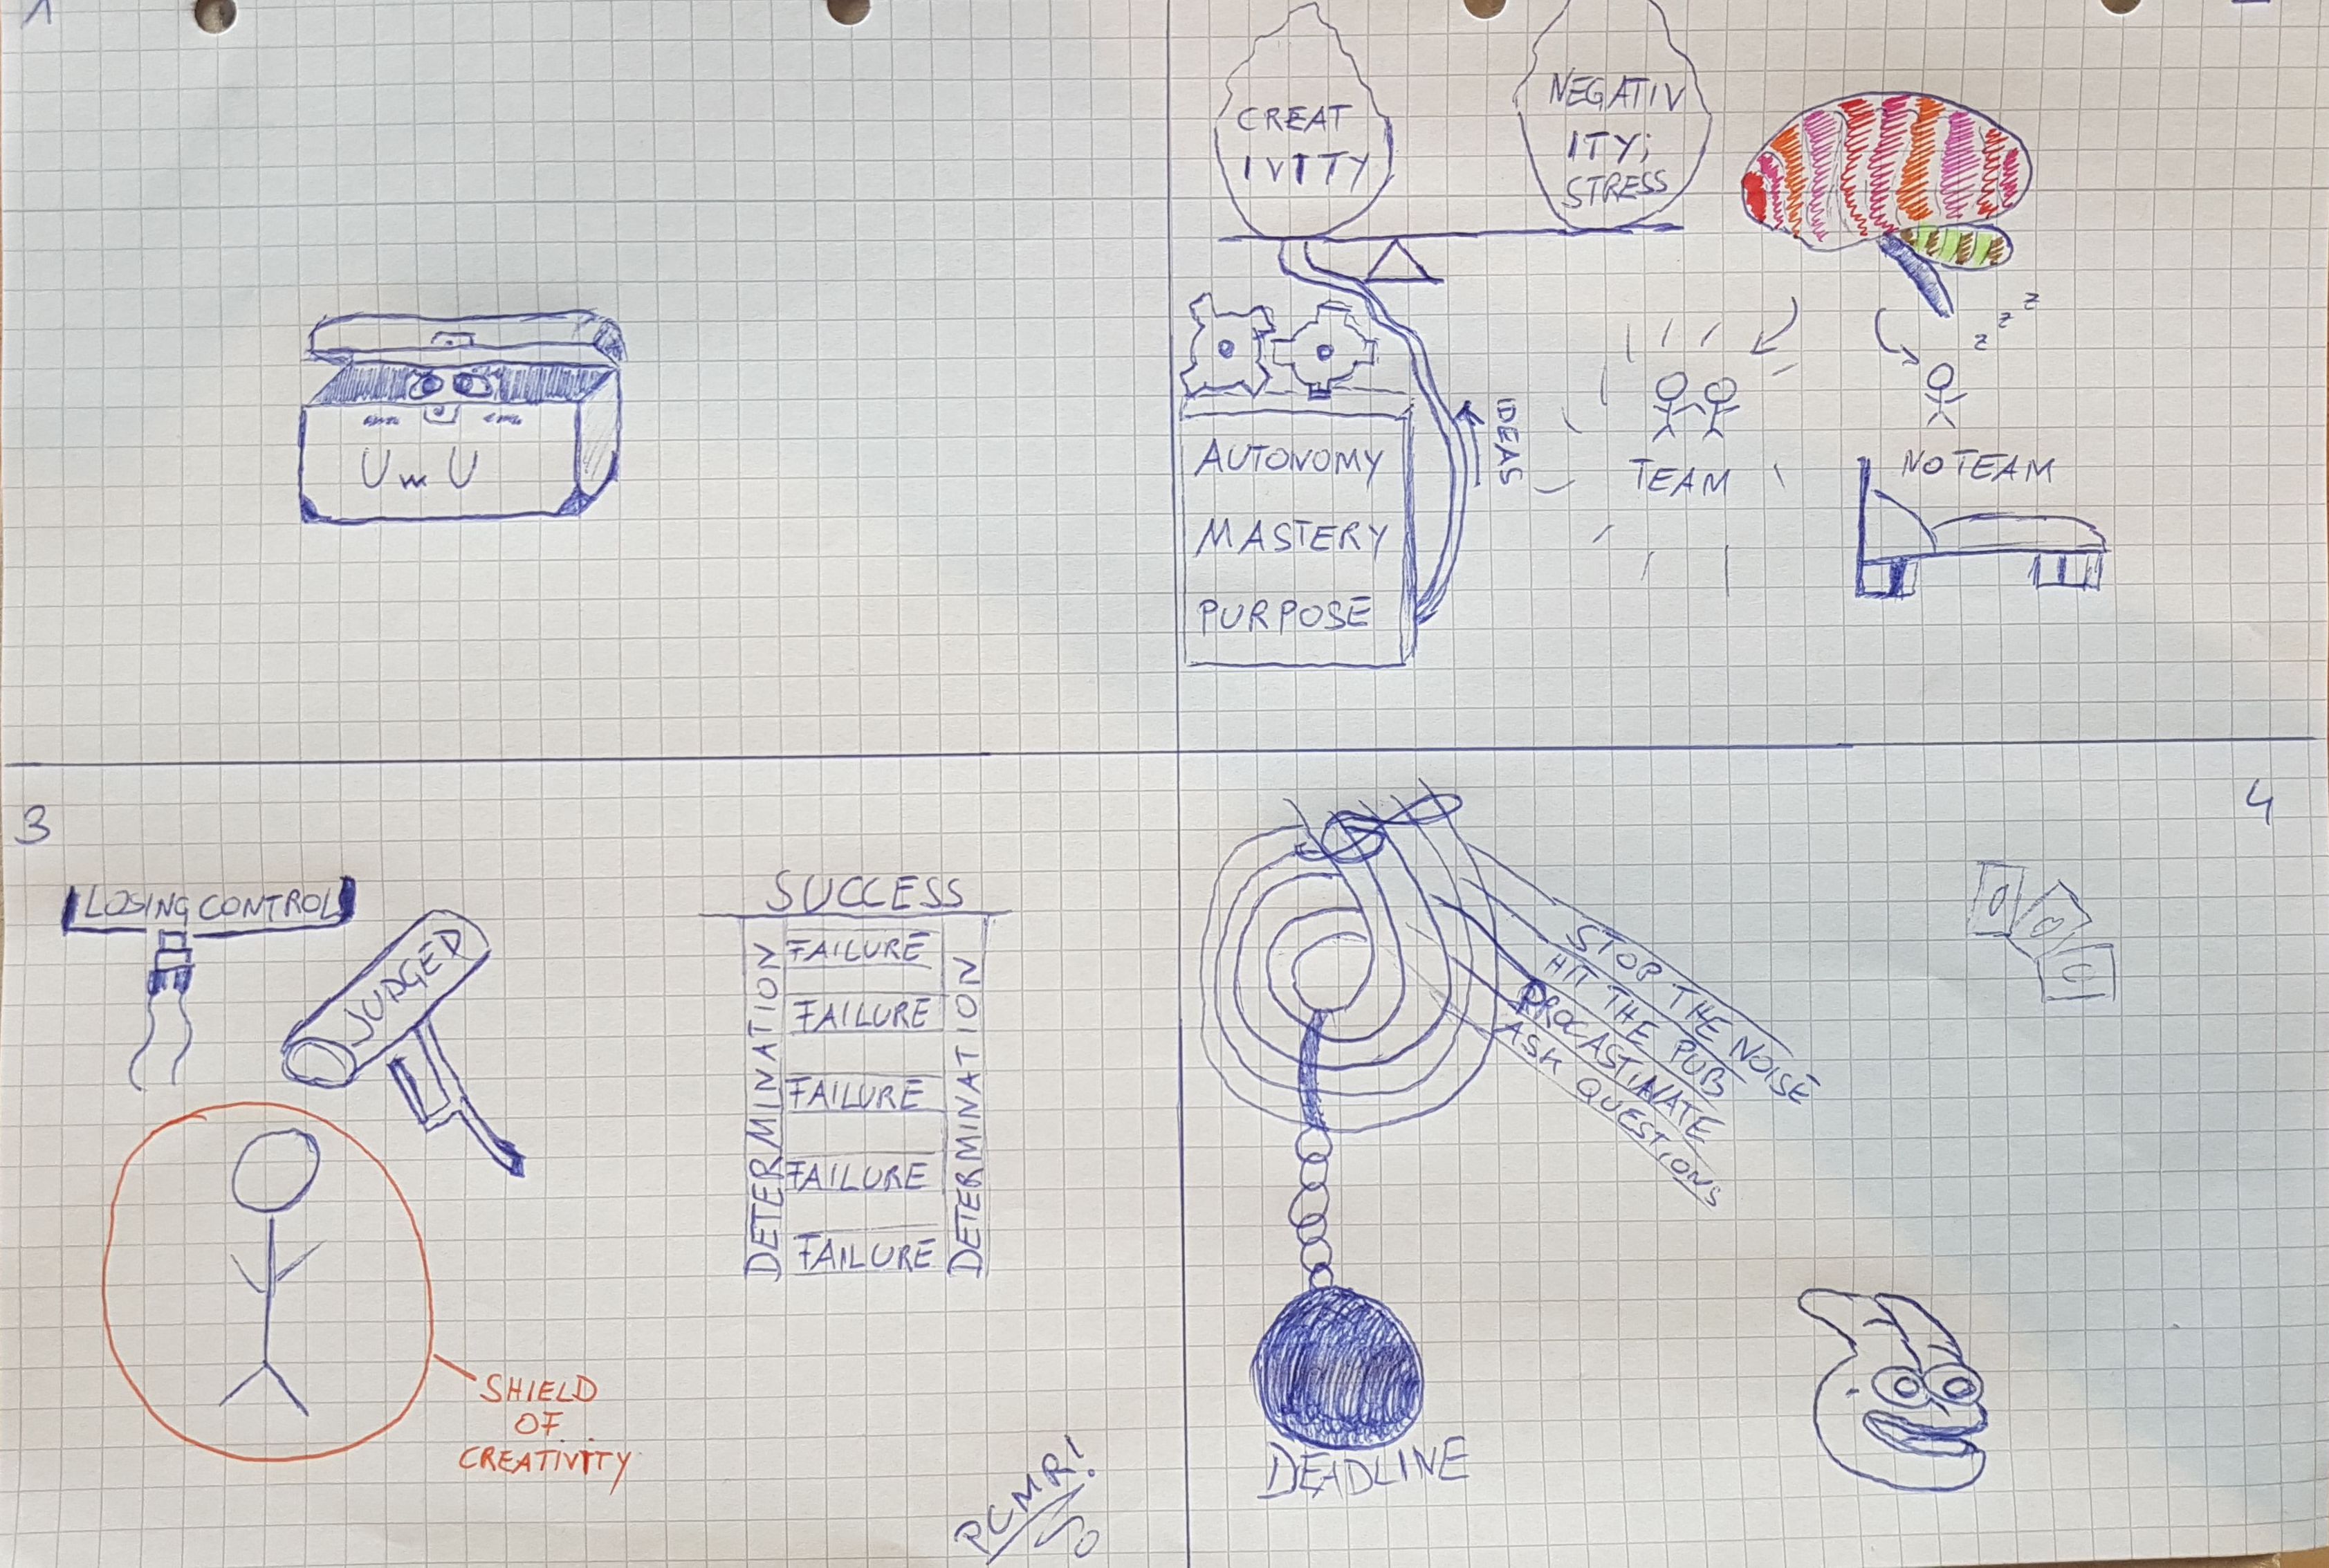 1
UmU
CREAT
IVITY
NEGATIV
ITY;
STRESS
z z z
IDEAS
AUTONOMY
MASTERY
PURPOSE
TEAM
NO TEAM
3
LOSING CONTROL
JUDGED
SHIELD
OF
CREATIVITY
SUCCESS
DETERMINATION
FAILURE
FAILURE
FAILURE
FAILURE
FAILURE
DETERMINATION
PCMR!
4
STOP THE NOISE
HIT THE PUB
PROCASTINATE
ASK QUESTIONS
DEADLINE